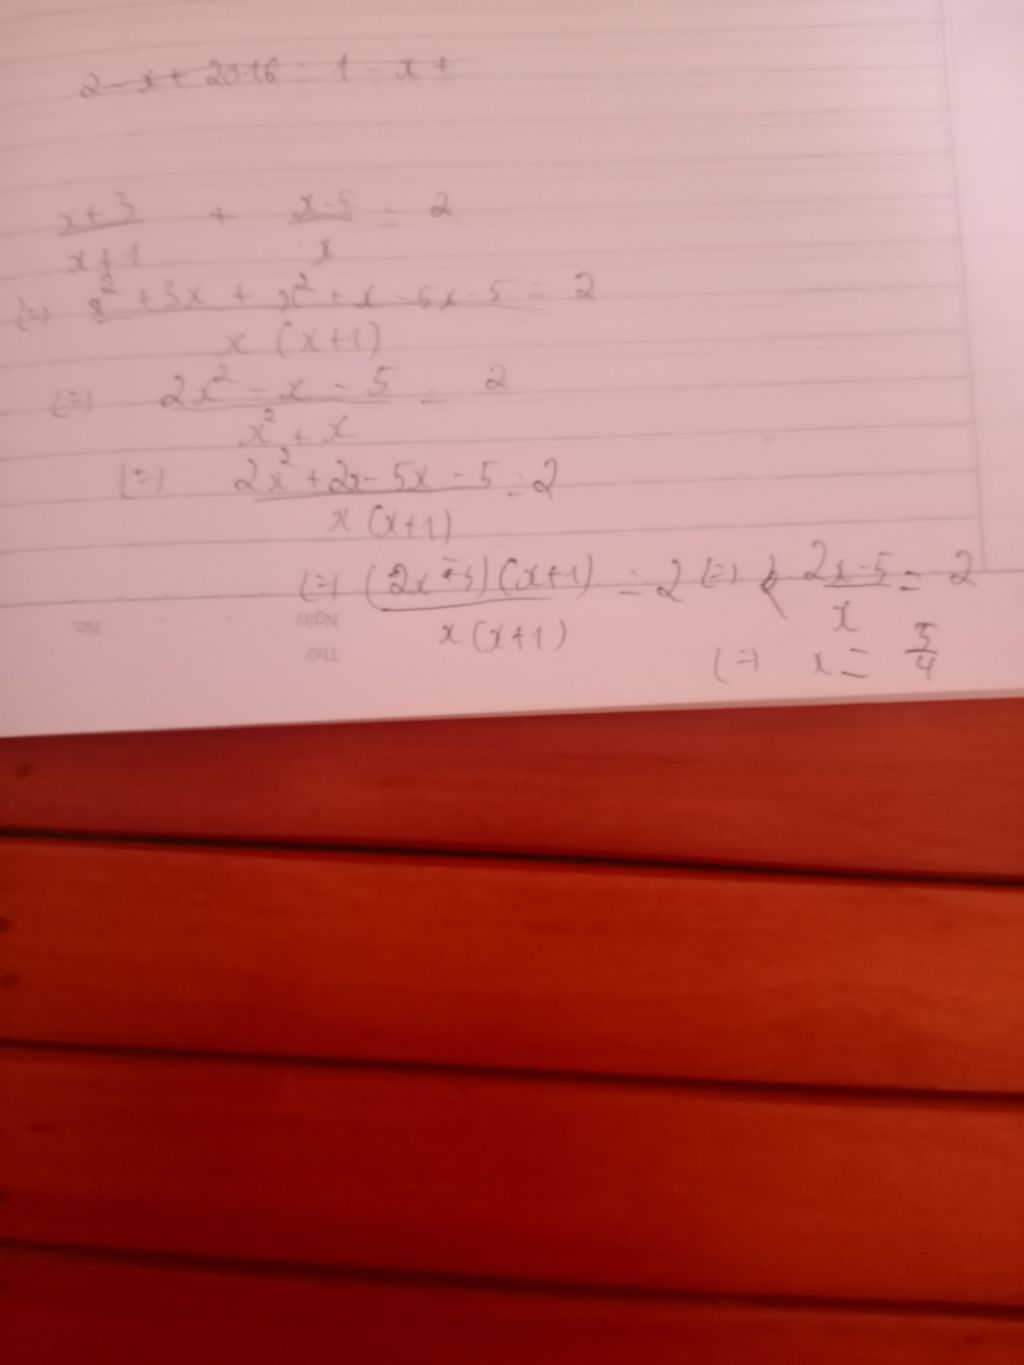 2 - x + 2016 = 1 - x +
x+3/x+1 + x-5/x = 2
(=) x² + 3x + x² + x - 5x - 5/x (x+1) = 2
(=) 2x² - x - 5/x² + x = 2
(=) 2x² + 2x - 5x - 5/x (x+1) = 2
(=) (2x-5)(x+1)/x (x+1) = 2 (=) 2x-5/x = 2
(=) x = 5/4
No.
Ngày
Thứ